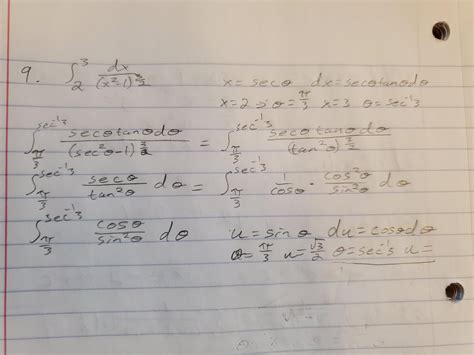 9. ∫₂³ dx/(x²-1)^(3/2) x = secθ dx = secθtanθdθ
x=2 → θ = π/3 x=3 θ = sec⁻¹3
∫_(π/3)^(sec⁻¹3) secθtanθdθ/(sec²θ-1)^(3/2) = ∫_(π/3)^(sec⁻¹3) secθtanθdθ/(tan²θ)^(3/2)
∫_(π/3)^(sec⁻¹3) secθ/tan²θ dθ = ∫_(π/3)^(sec⁻¹3) 1/cosθ · cos²θ/sin²θ dθ
∫_(π/3)^(sec⁻¹3) cosθ/sin²θ dθ u = sinθ du = cosθdθ
θ = π/3 u = √3/2 θ = sec⁻¹3 u =